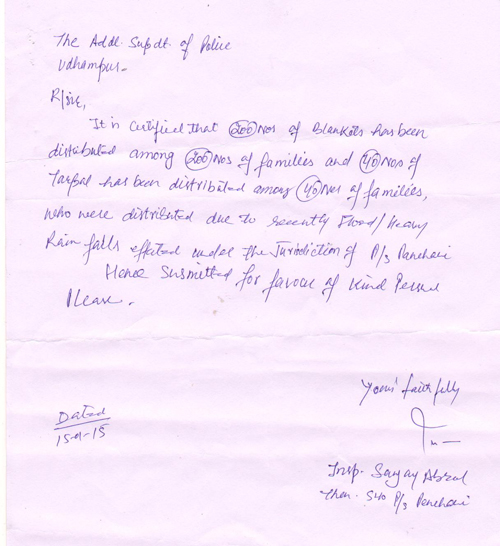 The Addl. Supdt. of Police
Udhampur-
R/sir,
It is certified that 200 Nos of Blankets has been
distributed among 200 Nos of families and 40 Nos of
Tarpal has been distributed among 40 Nos of families,
who were distributed due to recently Flood/Heavy
Rain falls effated under the Jurisdiction of P/s Panchari
Hence Susmitted for favour of Kind Perusal
Please.
Yours' faithfully
Dated
15-9-15
Insp. Sanjay Abrol
Then. SHO P/s Panchari